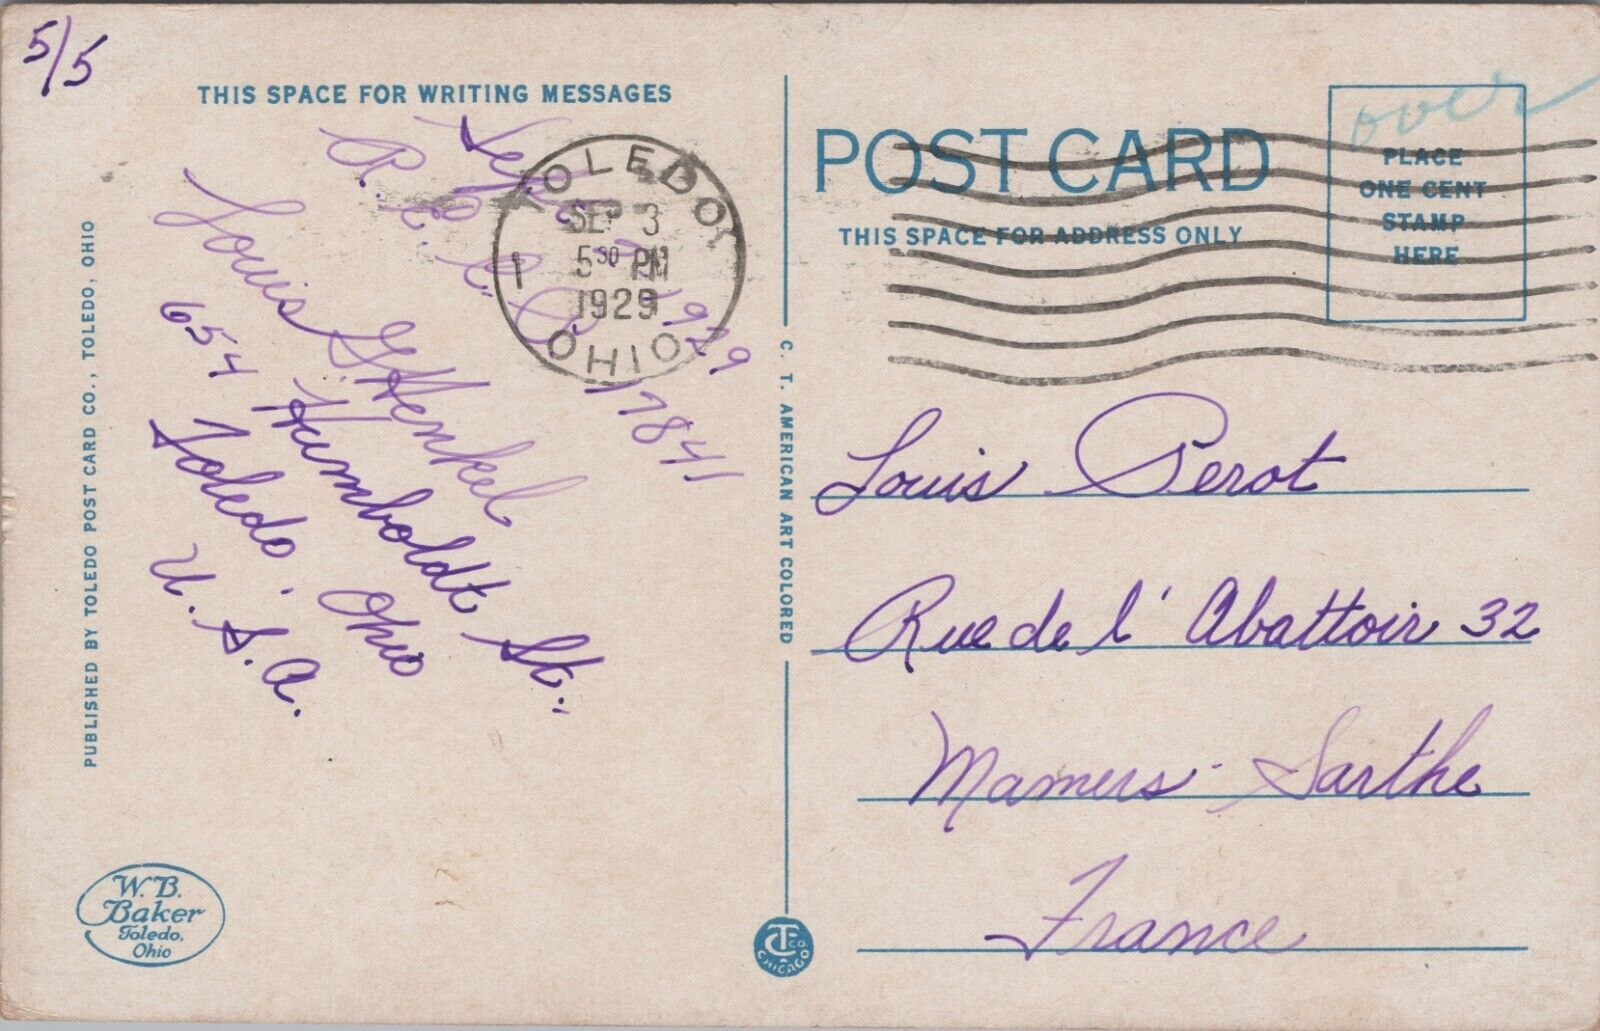 5/5
THIS SPACE FOR WRITING MESSAGES
1929
P. C. C. C. 17841
Louis G. Henkel
654 Humboldt St.,
Toledo, Ohio
U. S. A.
PUBLISHED BY TOLEDO POST CARD CO., TOLEDO, OHIO
W. B.
Baker
Toledo,
Ohio
TOLEDO,
SEP 3
5 30 PM
1929
1
OHIO
C. T. AMERICAN ART COLORED
CT CO
CHICAGO
POST CARD
THIS SPACE FOR ADDRESS ONLY
over
PLACE
ONE CENT
STAMP
HERE
Louis Perot
Rue de l' Abattoir 32
Mamers - Sarthe
France